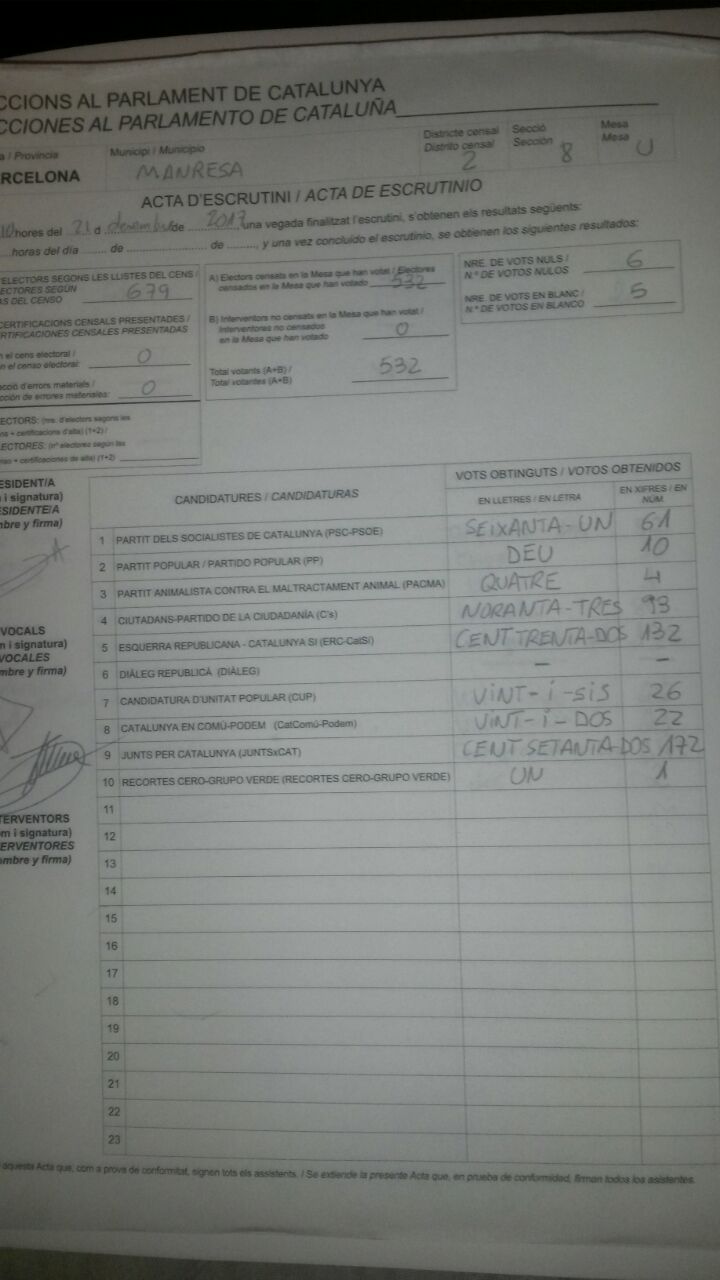 CCIONS AL PARLAMENT DE CATALUNYA
CCIONES AL PARLAMENTO DE CATALUÑA
a / Provincia Municipi / Municipio Districte censal Secció Mesa
Distrito censal Sección Mesa
RCELONA MANRESA 2 8 U
ACTA D'ESCRUTINI / ACTA DE ESCRUTINIO
10 hores del 21 d desembre de 2017, una vegada finalitzat l'escrutini, s'obtenen els resultats següents:
horas del día de de , y una vez concluido el escrutinio, se obtienen los siguientes resultados:
ELECTORS SEGONS LES LLISTES DEL CENS /
ECTORES SEGÚN
AS DEL CENSO 679
CERTIFICACIONS CENSALS PRESENTADES /
RTIFICACIONES CENSALES PRESENTADAS
n el cens electoral /
n el censo electoral: 0
cció d'errors materials /
cción de errores materiales: 0
ECTORS: (nre. d'electors segons les
ns + certificacions d'alta) (1+2) /
LECTORES: (nº electores según las
nso + certificaciones de alta) (1+2)
A) Electors censats en la Mesa que han votat / Electores
censados en la Mesa que han votado 532
B) Interventors no censats en la Mesa que han votat /
Interventores no censados
en la Mesa que han votado 0
Total votants (A+B) /
Total votantes (A+B) 532
NRE. DE VOTS NULS /
N.º DE VOTOS NULOS 6
NRE. DE VOTS EN BLANC /
N.º DE VOTOS EN BLANCO 5
ESIDENT/A
m i signatura)
ESIDENTE/A
mbre y firma)
VOCALS
m i signatura)
VOCALES
mbre y firma)
TERVENTORS
om i signatura)
ERVENTORES
ombre y firma)
CANDIDATURES / CANDIDATURAS VOTS OBTINGUTS / VOTOS OBTENIDOS
EN LLETRES / EN LETRA EN XIFRES / EN NÚM.
1 PARTIT DELS SOCIALISTES DE CATALUNYA (PSC-PSOE) SEIXANTA-UN 61
2 PARTIT POPULAR / PARTIDO POPULAR (PP) DEU 10
3 PARTIT ANIMALISTA CONTRA EL MALTRACTAMENT ANIMAL (PACMA) QUATRE 4
4 CIUTADANS-PARTIDO DE LA CIUDADANÍA (C's) NORANTA-TRES 93
5 ESQUERRA REPUBLICANA - CATALUNYA SÍ (ERC-CatSí) CENT TRENTA-DOS 132
6 DIÀLEG REPUBLICÀ (DIÀLEG) – –
7 CANDIDATURA D'UNITAT POPULAR (CUP) VINT-i-SIS 26
8 CATALUNYA EN COMÚ-PODEM (CatComú-Podem) VINT-i-DOS 22
9 JUNTS PER CATALUNYA (JUNTSxCAT) CENT SETANTA-DOS 172
10 RECORTES CERO-GRUPO VERDE (RECORTES CERO-GRUPO VERDE) UN 1
11
12
13
14
15
16
17
18
19
20
21
22
23
aquesta Acta que, com a prova de conformitat, signen tots els assistents. / Se extiende la presente Acta que, en prueba de conformidad, firman todos los asistentes.